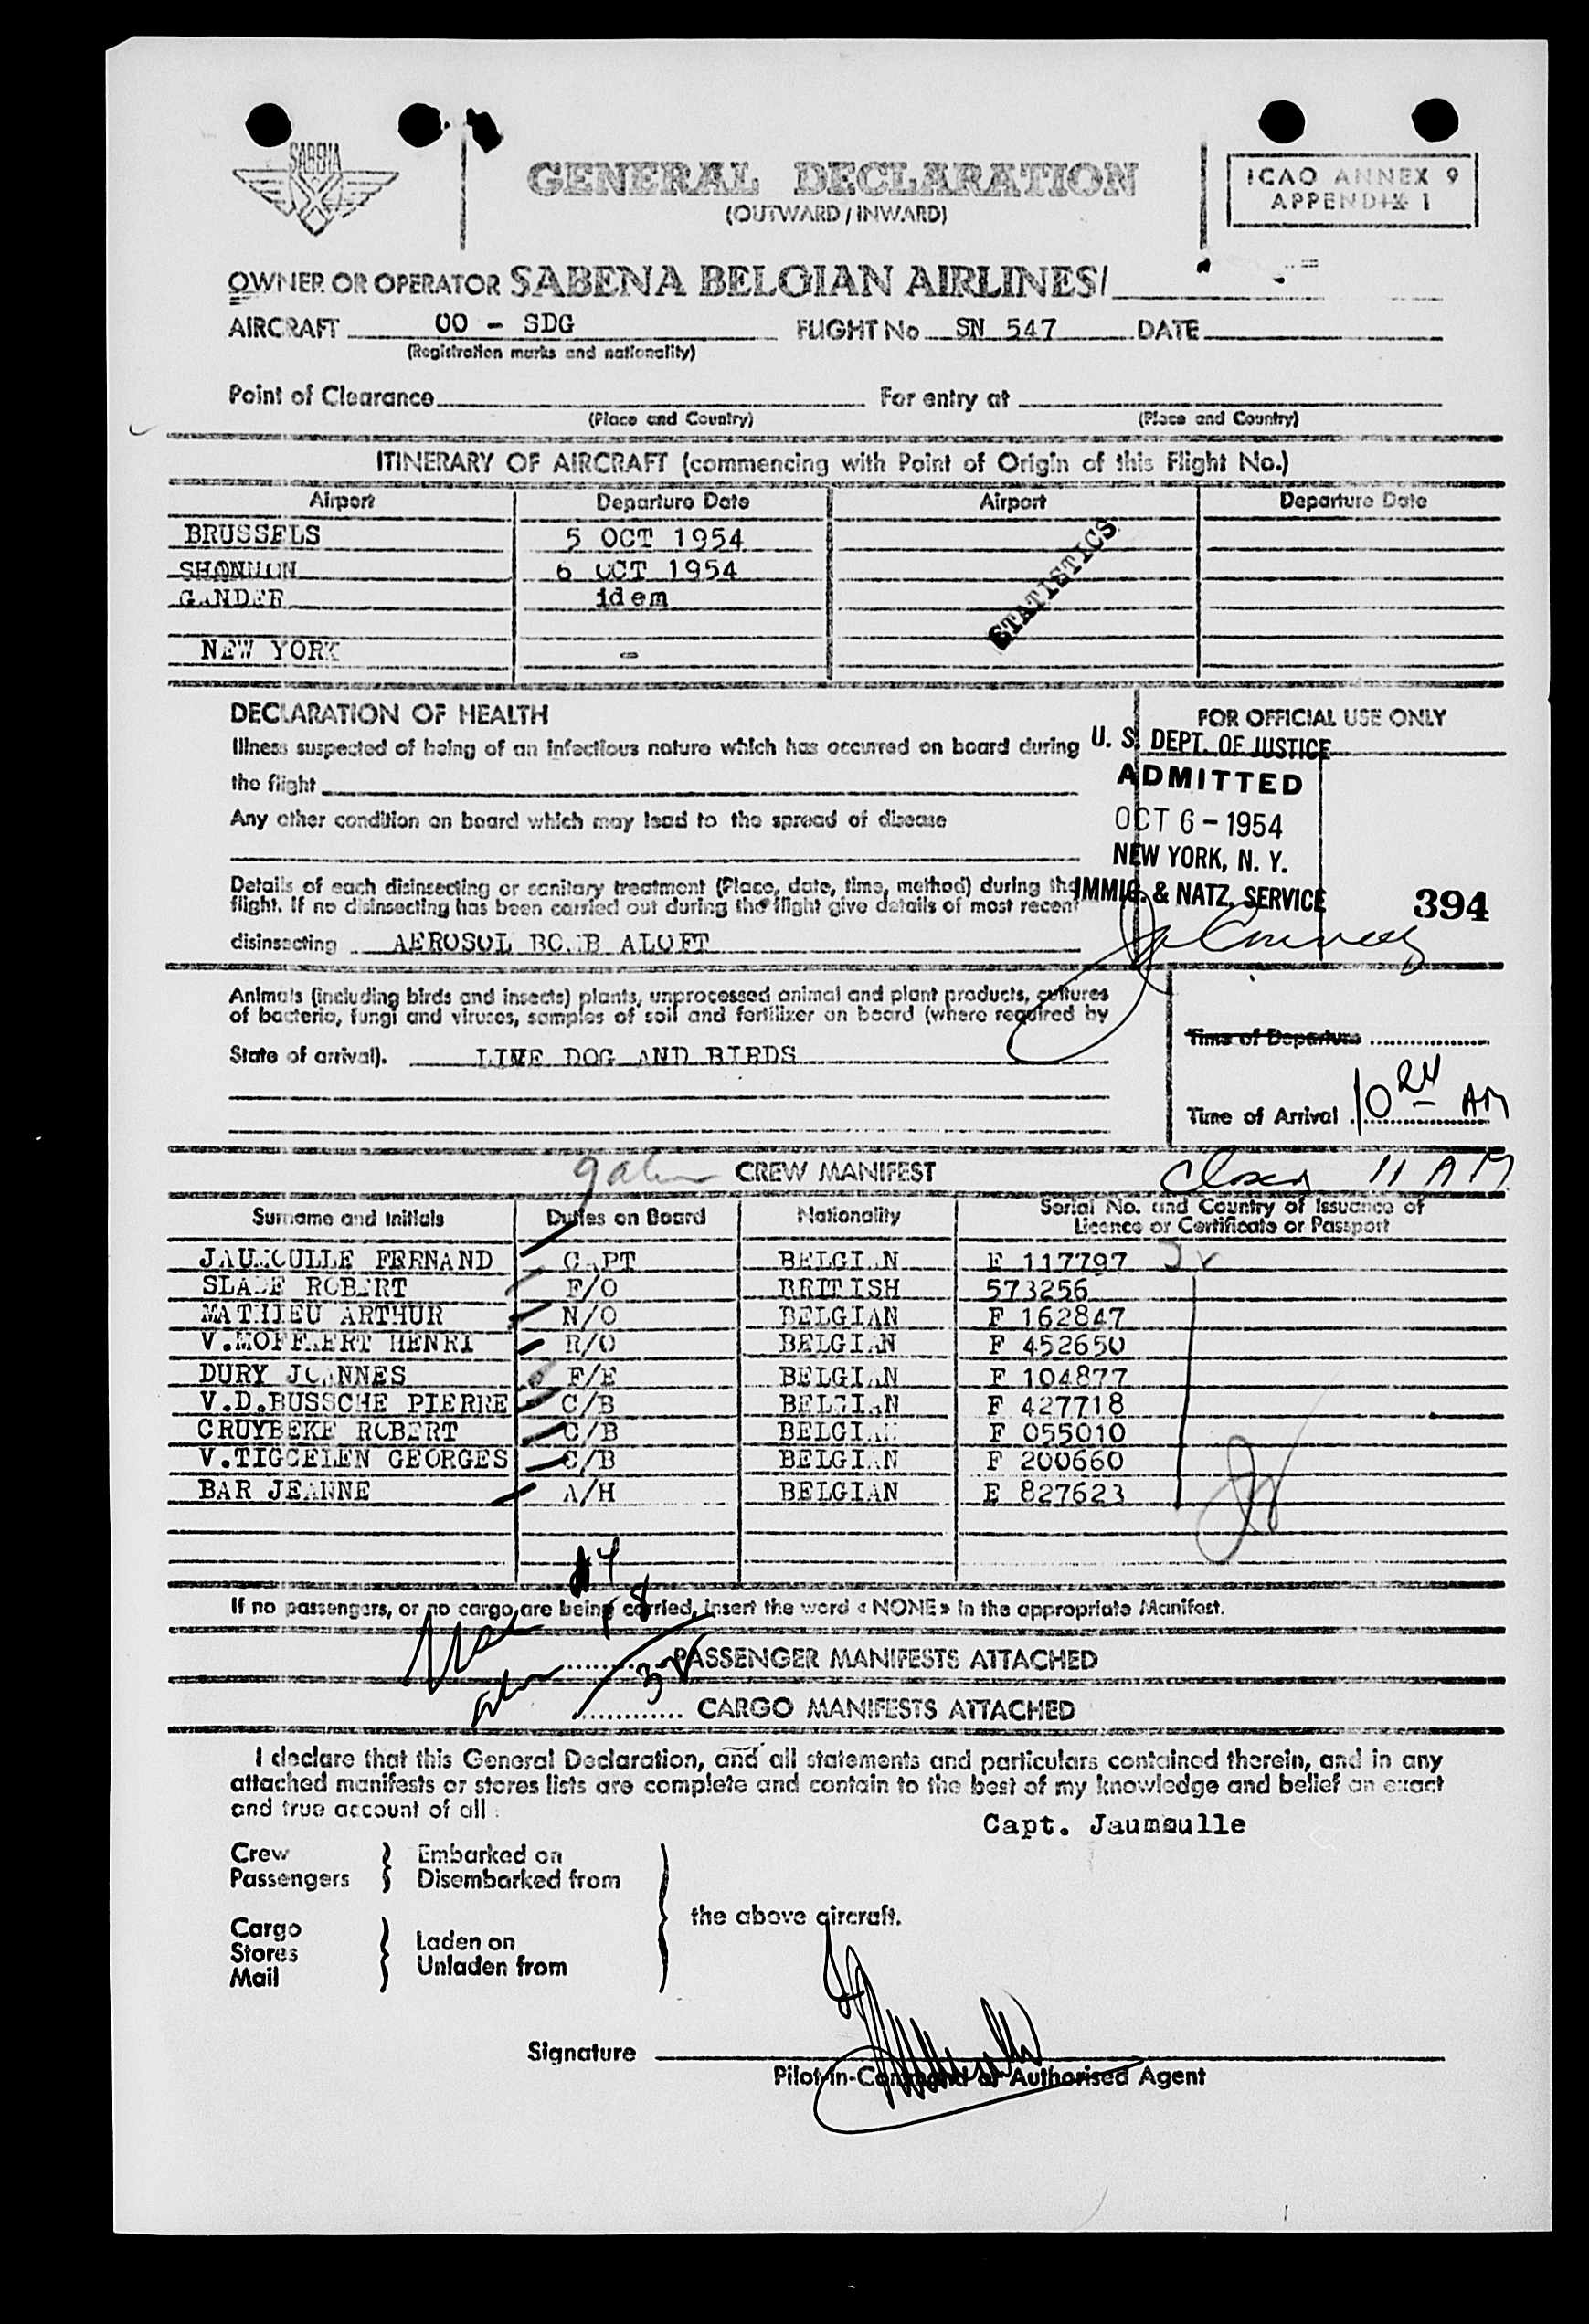 SABENA
GENERAL DECLARATION
(OUTWARD / INWARD)
ICAO ANNEX 9
APPENDIX 1
OWNER OR OPERATOR SABENA BELGIAN AIRLINES/
AIRCRAFT OO - SDG FLIGHT No SN 547 DATE
(Registration marks and nationality)
Point of Clearance For entry at
(Place and Country) (Place and Country)
ITINERARY OF AIRCRAFT (commencing with Point of Origin of this Flight No.)
Airport Departure Date Airport Departure Date
BRUSSELS 5 OCT 1954
SHANNON 6 OCT 1954
GANDER idem
STATISTICS
NEW YORK -
DECLARATION OF HEALTH
FOR OFFICIAL USE ONLY
Illness suspected of being of an infectious nature which has occurred on board during
the flight
Any other condition on board which may lead to the spread of disease
U. S. DEPT. OF JUSTICE
ADMITTED
OCT 6 - 1954
NEW YORK, N. Y.
IMMIG. & NATZ. SERVICE
394
Details of each disinsecting or sanitary treatment (Place, date, time, method) during the
flight. If no disinsecting has been carried out during the flight give details of most recent
disinsecting AEROSOL BOMB ALOFT
Animals (including birds and insects) plants, unprocessed animal and plant products, cultures
of bacteria, fungi and viruses, samples of soil and fertilizer on board (where required by
State of arrival). LIVE DOG AND BIRDS
Time of Departure
Time of Arrival 10 24 AM
CREW MANIFEST
Closed 11 AM
Surname and Initials Duties on Board Nationality Serial No. and Country of Issuance of
Licence or Certificate or Passport
JAUMOULLE FERNAND CAPT BELGIAN F 117797
SLADE ROBERT F/O BRITISH 573256
MATHIEU ARTHUR N/O BELGIAN F 162847
V.MOFFAERT HENRI R/O BELGIAN F 452650
DURY JOANNES F/E BELGIAN F 104877
V.D.BUSSCHE PIERRE C/B BELGIAN F 427718
CRUYBEKE ROBERT C/B BELGIAN F 055010
V.TIGGELEN GEORGES C/B BELGIAN F 200660
BAR JEANNE A/H BELGIAN E 827623
If no passengers, or no cargo are being carried, insert the word « NONE » in the appropriate Manifest.
PASSENGER MANIFESTS ATTACHED
CARGO MANIFESTS ATTACHED
I declare that this General Declaration, and all statements and particulars contained therein, and in any
attached manifests or stores lists are complete and contain to the best of my knowledge and belief an exact
and true account of all :
Capt. Jaumoulle
Crew Embarked on
Passengers Disembarked from
the above aircraft.
Cargo
Stores Laden on
Mail Unladen from
Signature
Pilot-in-Command or Authorised Agent